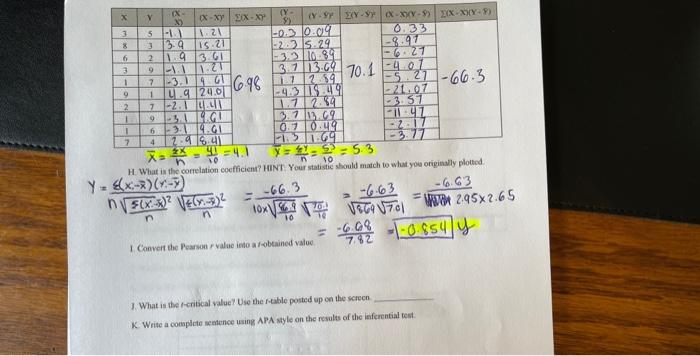 X Y (X - X̄) (X - X̄)² Σ(X - X̄)² (Y - Ȳ) (Y - Ȳ)² Σ(Y - Ȳ)² (X - X̄)(Y - Ȳ) Σ(X - X̄)(Y - Ȳ)
3 5 -1.1 1.21 -0.3 0.09 0.33
8 3 3.9 15.21 -2.3 5.29 -8.97
6 2 1.9 3.61 -3.3 10.89 -6.27
3 9 -1.1 1.21 3.7 13.69 -4.07
1 7 -3.1 9.61 6.98 1.7 2.89 70.1 -5.27 -66.3
9 1 4.9 24.01 -4.3 18.49 -21.07
2 7 -2.1 4.41 1.7 2.89 -3.57
1 9 -3.1 9.61 3.7 13.69 -11.47
1 6 -3.1 9.61 0.7 0.49 -2.17
7 4 2.9 8.41 -1.3 1.69 -3.77
X̄ = ΣX/n = 41/10 = 4.1 Ȳ = ΣY/n = 53/10 = 5.3
H. What is the correlation coefficient? HINT: Your statistic should match to what you originally plotted.
Y = Σ(X-x̄)(Y-ȳ) / n√(Σ(X-x̄)²/n) √(Σ(Y-ȳ)²/n) = -66.3 / 10x√(86.9/10) √(70.1/10) = -6.63 / √8.69 √7.01 = -6.63 / 2.95x2.65
= -6.68 / 7.82 = -0.854 y
I. Convert the Pearson r value into a t-obtained value.
J. What is the t-critical value? Use the t-table posted up on the screen.
K. Write a complete sentence using APA style on the results of the inferential test.